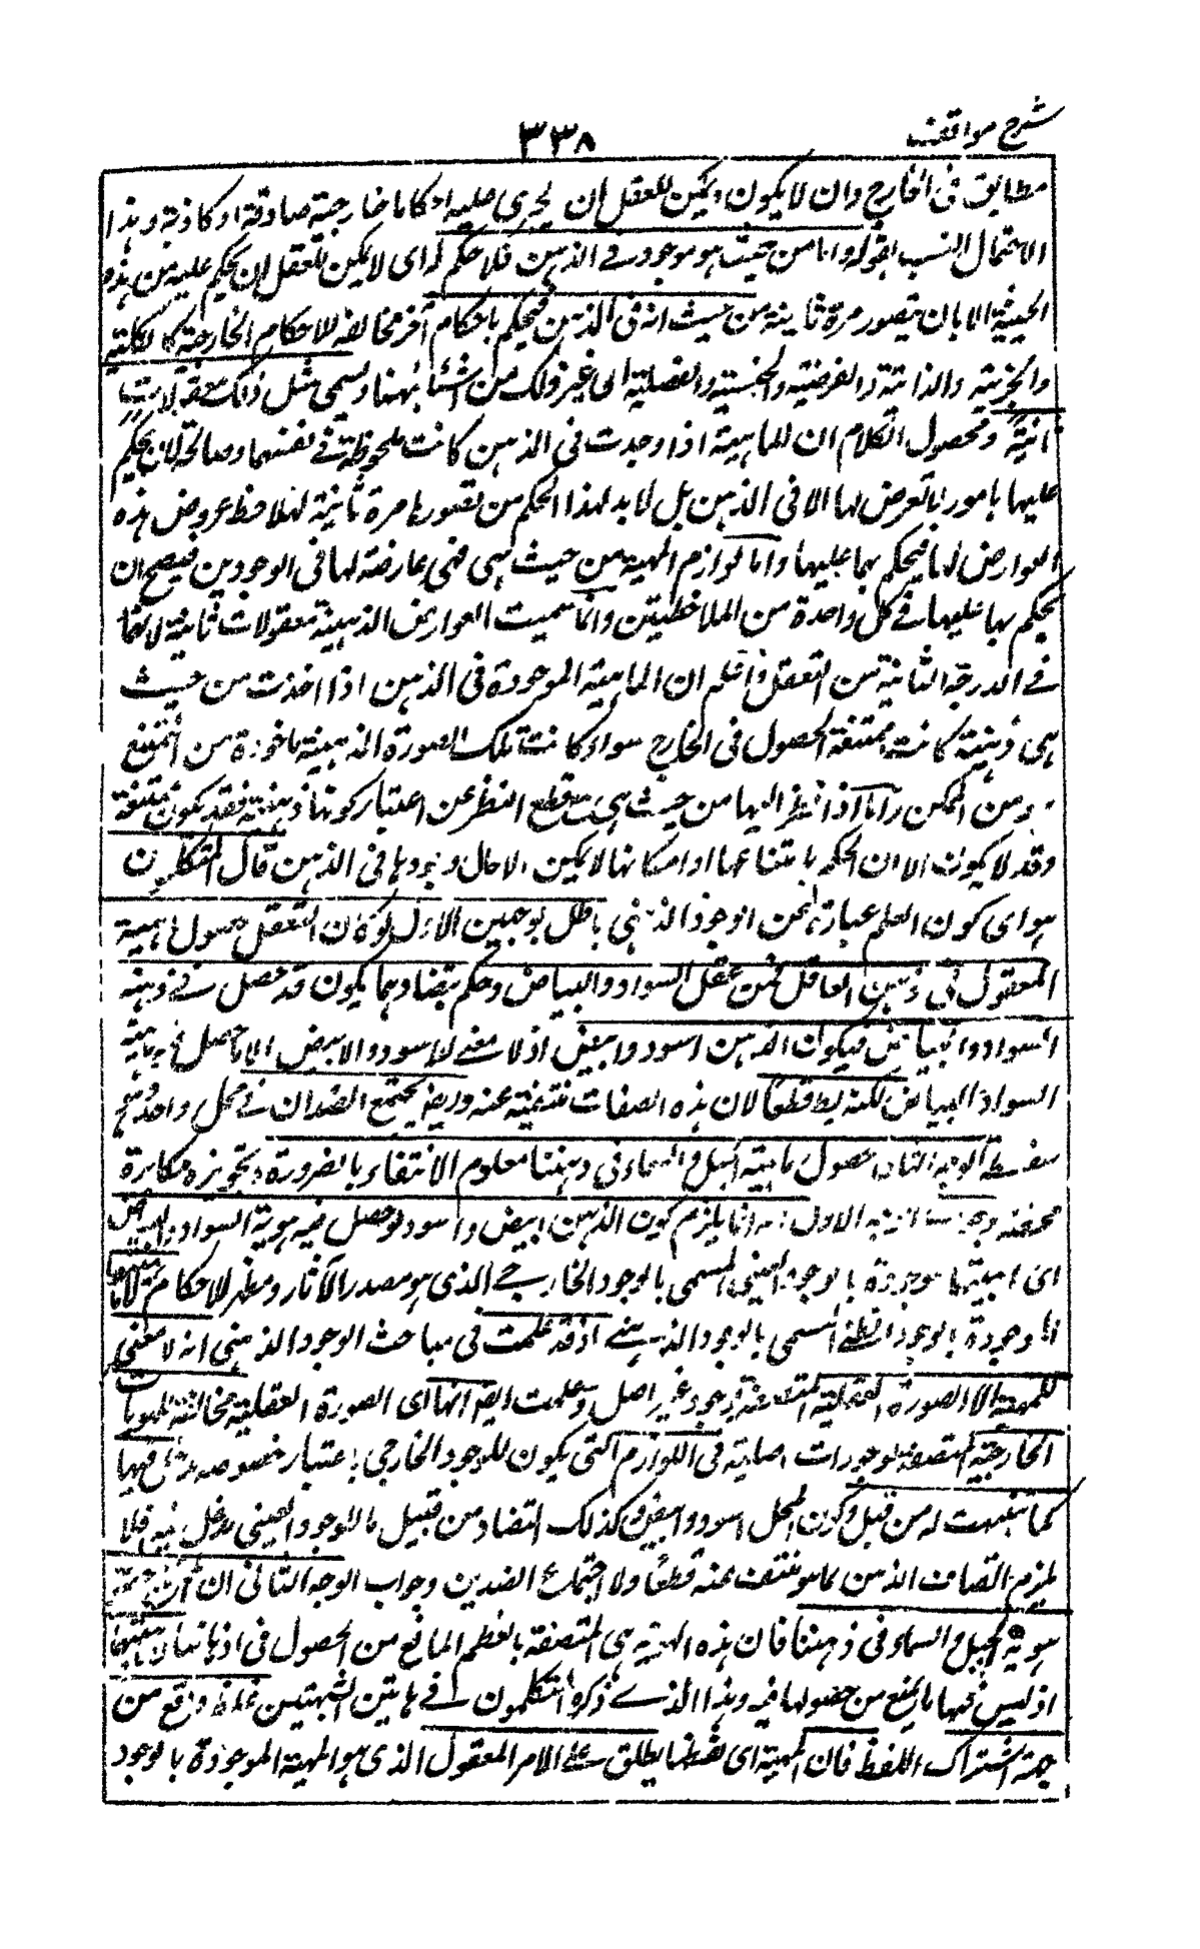 شرح مواقف
٣٣٨
مطابق فى الخارج وان لا يكون ويمكن للعقل ان يجرى عليه احكاما خارجية صادقة او كاذبة وهذا
الاحتمال انسب بقوله واما من حيث هو موجود فى الذهن فلا حكم له اى لا يمكن للعقل ان يحكم عليه من هذه
الحيثية الا بان يتصور مرة ثانية من حيث انه فى الذهن فيحكم باحكام أخر مخالفة للاحكام الخارجية كالكلية
والجزئية والذاتية والعرضية والجنسية والفصلية الى غير ذلك من اشتباهها ويسمى مثل ذلك معقولات
ثانية ومحصول الكلام ان للماهية اذا وجدت فى الذهن كانت ملحوظة فى نفسها وصالحة لان يحكم
عليها بامور لا تعرض لها الا فى الذهن بل لا بد لهذا الحكم من تصورها مرة ثانية ليلاحظ عروض هذه
العوارض لها فيحكم بها عليها واما لوازم المهية من حيث هى هى عارضة لها فى الوجودين فيصح ان
يحكم بها عليها فى كل واحدة من الملاحظتين وانما سميت العوارض الذهنية معقولات ثانية لانها
فى الدرجة الثانية من التعقل واعلم ان الماهية الموجودة فى الذهن اذا اخذت من حيث
هى ذهنية كانت ممتنعة الحصول فى الخارج سواء كانت تلك الصورة الذهنية ماخوذة من الممتنع
ومن الممكن واما اذا نظر اليها من حيث هى مع قطع النظر عن اعتبار كونها ذهنية فقد يكون ممتنعة
وقد لا يكون الا ان الحكم بامتناعها او امكانها لا يمكن الا حال وجودها فى الذهن قال المتكلمون
هو اى كون العلم عبارة عن الوجود الذهنى باطل بوجهين الاول لو كان التعقل حصول ماهية
المعقول فى ذهن العاقل فمن عقل السواد والبياض وحكم بتضادهما يكون قد حصل فى ذهنه
السواد والبياض فيكون الذهن اسود وابيض اذ لا معنى للاسود والابيض الا ما حصل فيه ماهية
السواد والبياض لكنه بط قطعا لان هذه الصفات منتفية عنه وايضا يجتمع الضدان فى محل واحد
سفسطة الوجه الثانى حصول ماهية الجبل والسماء فى ذهننا معلوم الانتفاء بالضرورة وتجويزه مكابرة
محضة والجواب عن الوجه الاول انه انما يلزم كون الذهن ابيض واسود لو حصل فيه هوية السواد والبياض
اى ماهيتهما موجودة بالوجود العينى المسمى بالوجود الخارجى الذى هو مصدر الآثار ومظهر الاحكام لا ماهيتهما
الموجودة بالوجود الظلى المسمى بالوجود الذهنى اذ قد علمت فى مباحث الوجود الذهنى انه لا معنى
للمهية الا الصورة العقلية المتصفة بوجود غير اصلى وعلمت ايضا انها اى الصورة العقلية مخالفة للهويات
الخارجية المتصفة بوجودات اصلية فى اللوازم التى يكون للوجود الخارجى باعتبار خصوصه مدخل فيها
كما تنبهت له من قبل وكون المحل اسود وابيض وكذلك التضاد من قبيل ما للوجود العينى مدخل فيه فلا
يلزم اتصاف الذهن بما هو منتف عنه قطعا ولا اجتماع الضدين وجواب الوجه الثانى ان الممتنع
هوية الجبل والسماء فى ذهننا فان هذه الهوية هى المتصفة بالعظم المانع من الحصول فى اذهاننا لا ماهيتهما
اذ ليس فيها ما يمنع من حصولها فيه وهذا الذى ذكره المتكلمون فى هاتين الشبهتين غلط واقع من
جهة اشتراك اللفظ فان المهية اى لفظها يطلق على الامر المعقول الذى هو المهية الموجودة بالوجود